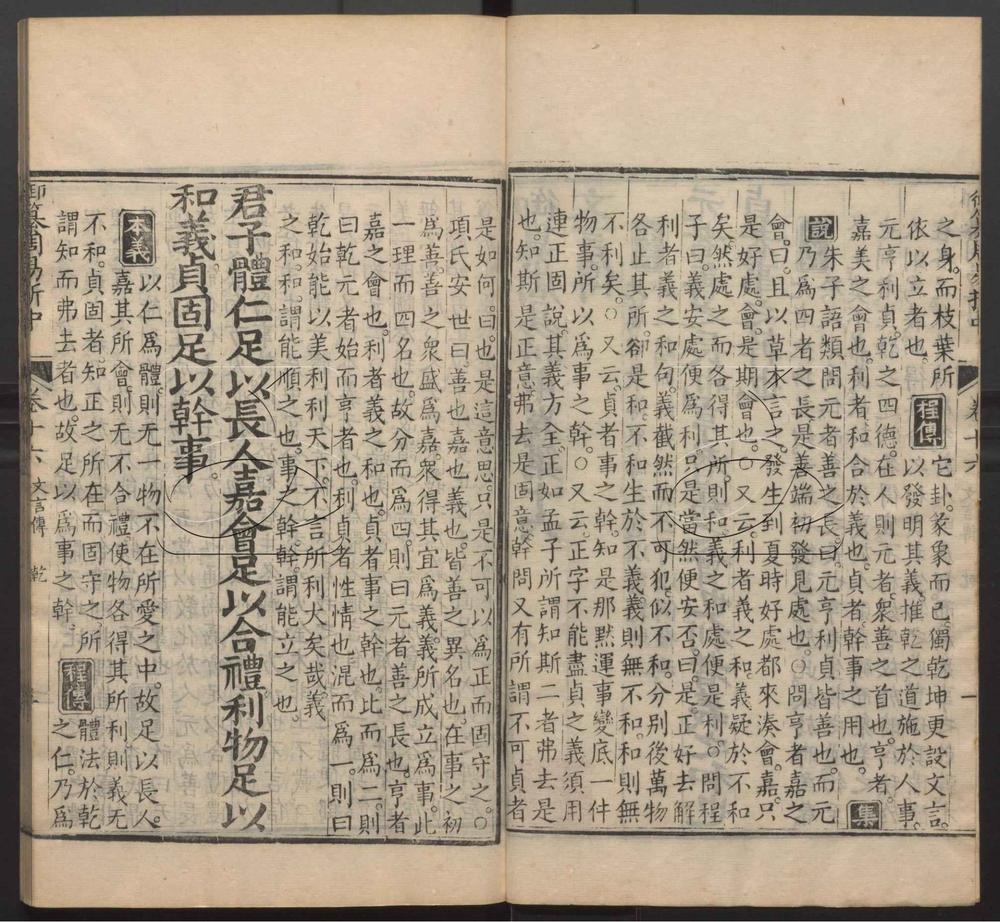 之身。而枝葉所
依以立者也。程傳它卦。彖象而已。獨乾坤更設文言。
以發明其義。推乾之道。施於人事。
元亨利貞。乾之四德。在人則元者。眾善之首也。亨者。
嘉美之會也。利者和合於義也。貞者幹事之用也。集
說朱子語類問元者善之長曰。元亨利貞皆善也。而元
乃爲四者之長。是善端初發見處也。○問亨者嘉之
會。曰。且以草木言之。發生到夏時好處都來湊會。嘉。只
是好處。會。是期會也。○又云。利者義之和。義疑於不和
矣。然處之而各得其所。則和。義之和處便是利。○問程
子曰。義安處便爲利。只是當然便安否。曰。是。正好去解
利者義之和句。義截然而不可犯。似不和。分别後萬物
各止其所。卻是和。不和生於不義。義則無不和。和則無
不利矣。○又云。貞者事之幹。知是那默運事變底一件
物事。所以爲事之幹。○又云。正字不能盡貞之義。須用
連正固說。其義方全。正如孟子所謂知斯二者弗去是
也。知斯是正意。弗去是固意。幹問又有所謂不可貞者
是如何。曰。也是這意思。只是不可以爲正而固守之。○
項氏安世曰。善也嘉也義也。皆善之異名也。在事之初
爲善。善之衆盛爲嘉。衆得其宜爲義。義所成立爲事。此
一理而四名也。故分而爲四。則曰元者善之長也。亨者
嘉之會也。利者義之和也。貞者事之幹也。比而爲二。則
曰乾元者始而亨者也。利貞者性情也。混而爲一。則曰
乾始能以美利利天下。不言所利大矣哉。義
之和。和。謂能順之也。事之幹。幹。謂能立之也。
君子體仁足以長人。嘉會足以合禮。利物足以
和義。貞固足以幹事。
本義以仁爲體。則无一物不在所愛之中。故足以長人。
嘉其所會。則无不合禮。使物各得其所利。則義无
不和。貞固者。知正之所在而固守之。所程傳體法於乾
謂知而弗去者也。故足以爲事之幹。之仁。乃爲
御纂周易折中
卷十六
文言傳
乾